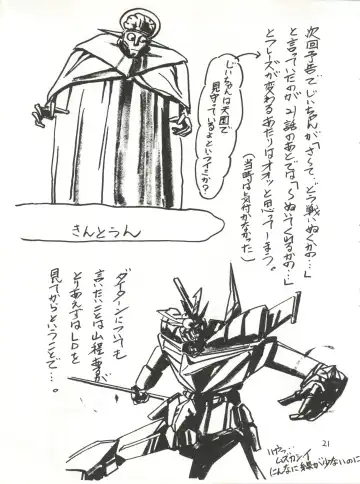 次回予告でじいちゃんが「さらて、どう戦いぬくかの…」
と言っていたのが21話のあとでは「〜ぬいてくれるかの…」
とフレーズが変わるあたりはオオッと思ってしまう。
(当時は気付かなかった)
じいちゃんは天国で
見守っているよというイミか?
きんとうん
ダイターンについても
言いたいことは山程あるが
とりあえずはLDを
見てからということで…。
21
こんなに線が少ないのに